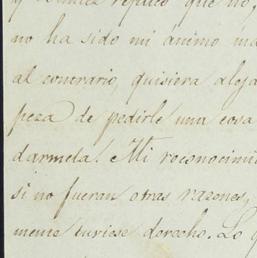 y repito que no,
no ha sido mi animo
al contrario, quisiera
peza de pedirle una cosa
darmela! Mi reconocimi
si no fueran otras razones,
mente tuviese derecho. Lo